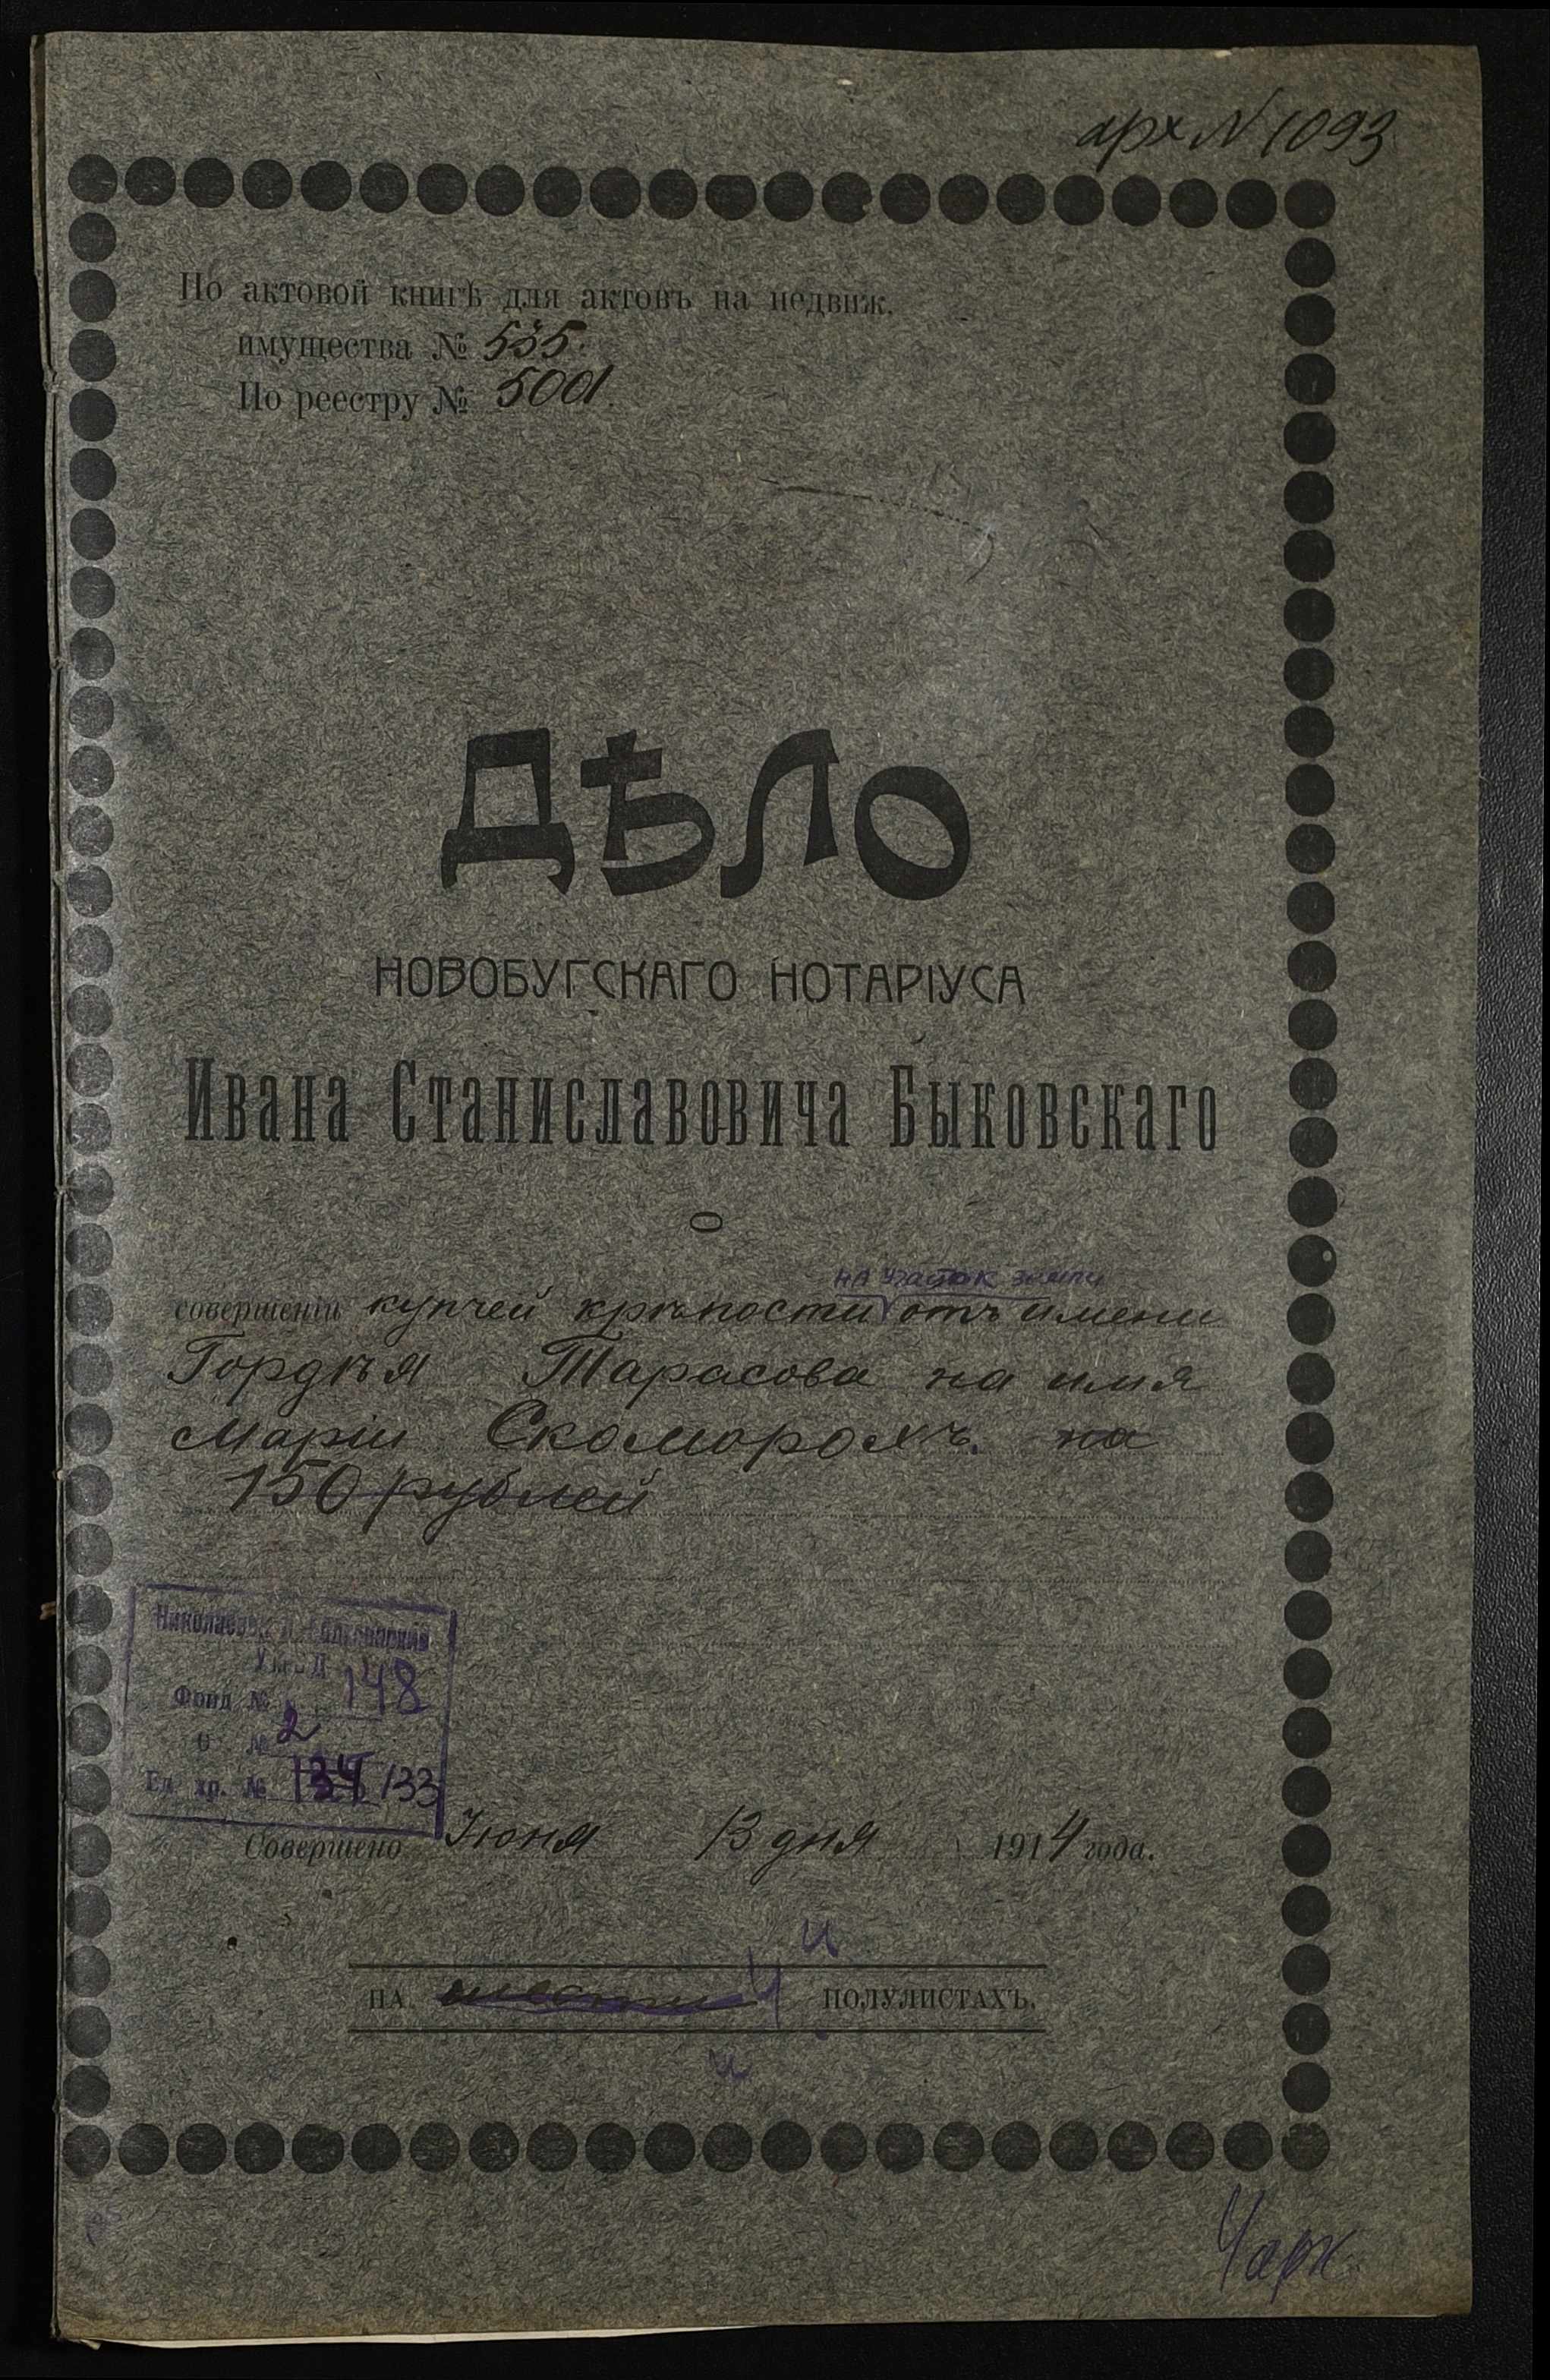 арх N 1093
По актовой книгѣ для актовъ на недвиж.
имущества № 535.
По реестру № 5001.
ДѢЛО
НОВОБУГСКАГО НОТАРІУСА
Ивана Станиславовича Быковскаго
О
на участок земли
совершеніи купчей крѣпости отъ имени
Гордѣя Тарасова на имя
Маріи Скоморохъ. на
150 рублей
Николаевский
Фонд № 148
О № 2
Ед. хр. № 134 133
Совершено Іюня 13 дня 1914 года.
и
НА шести 4 ПОЛУЛИСТАХЪ.
и
4 арк